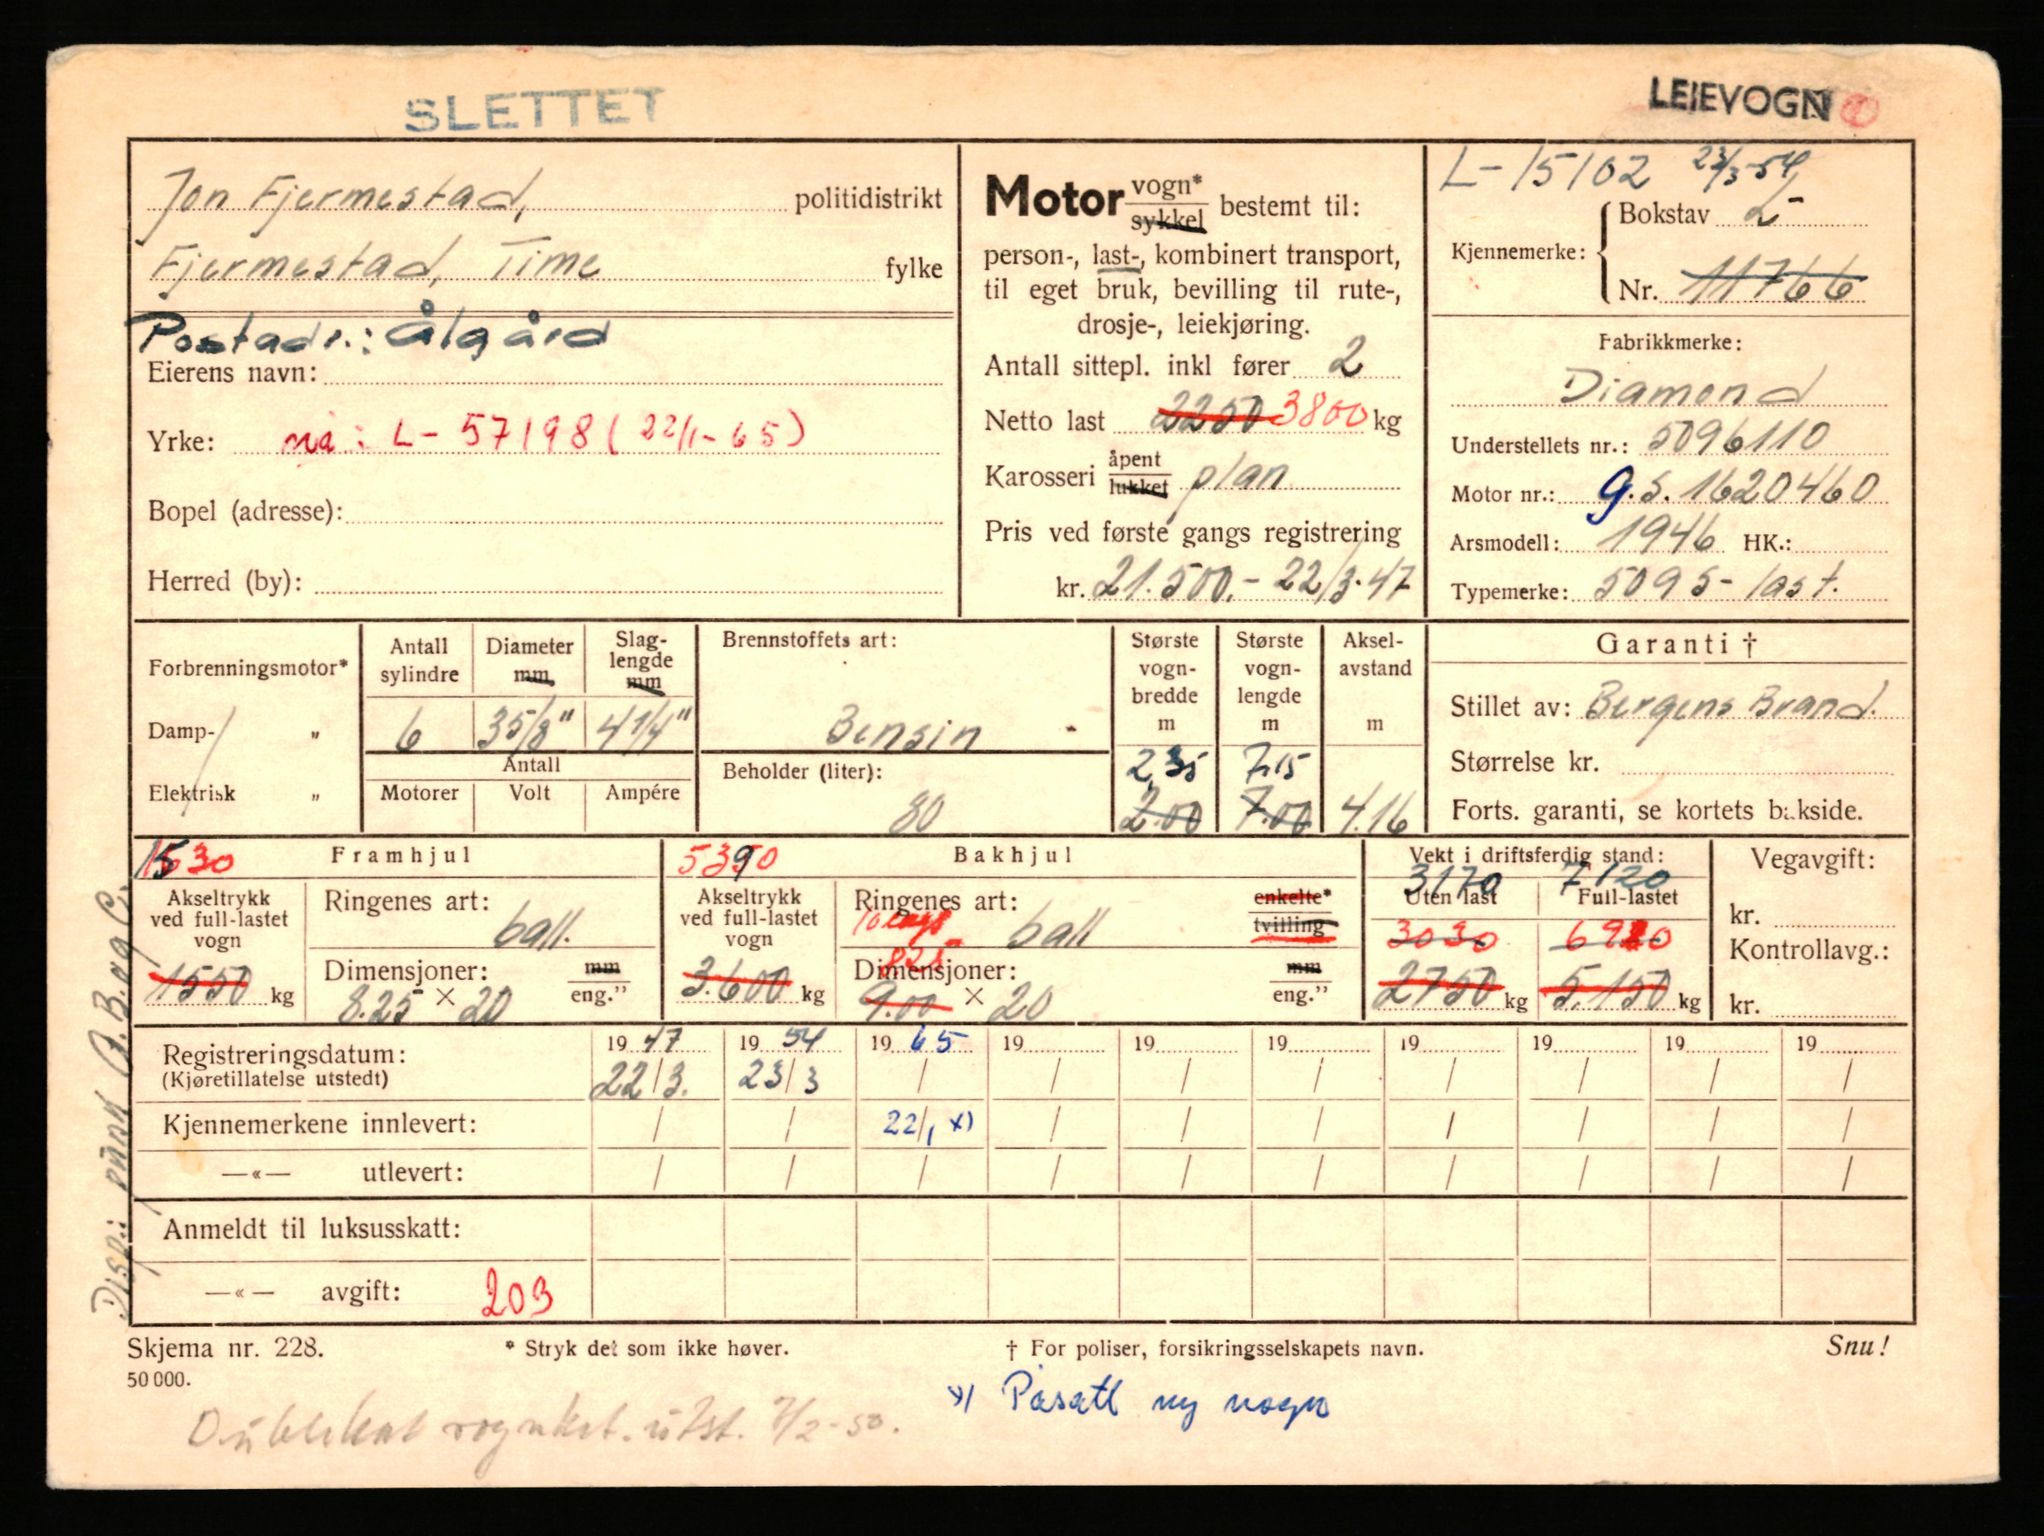 SLETTET
LEIEVOGN
Jon Fjermestad, politidistrikt
Fjermestad, Time fylke
Postadr.: Ålgård
Eierens navn:
Yrke: nå: L- 57198 (22/1-65)
Bopel (adresse):
Herred (by):
Motor vogn* sykkel bestemt til:
person-, last-, kombinert transport,
til eget bruk, bevilling til rute-,
drosje-, leiekjøring.
Antall sittepl. inkl fører 2
Netto last 2250 3800 kg
Karosseri åpent lukket plan
Pris ved første gangs registrering
kr. 21.500.- 22/3.47
L-15102 23/3-54
Kjennemerke: Bokstav L-
Nr. 11766
Fabrikkmerke:
Diamond
Understellets nr.: 5096110
Motor nr.: G.S. 1620460
Arsmodell: 1946 HK.:
Typemerke: 509S- last.
Forbrenningsmotor*
Damp- „
Elektrisk „
Antall sylindre
Diameter mm
Slaglengde mm
6 35/8" 41/4"
Antall
Motorer Volt Ampére
Brennstoffets art:
Bensin
Beholder (liter):
80
Største vognbredde m
2,35
2.00
Største vognlengde m
7.15
7.00
Akselavstand m
4.16
Garanti †
Stillet av: Bergens Brand.
Størrelse kr.
Forts. garanti, se kortets bakside.
1530 Framhjul
Akseltrykk ved full-lastet vogn
1550 kg
Ringenes art:
ball.
Dimensjoner: mm
8.25 × 20 eng.”
5390 Bakhjul
Akseltrykk ved full-lastet vogn
3.600 kg
Ringenes art: enkelte*
ball tvilling
Dimensjoner: mm
825
9.00 × 20 eng.”
Vekt i driftsferdig stand:
3170 7120
Uten last Full-lastet
3030 6920
2750 kg 5.150 kg
Vegavgift:
kr.
Kontrollavg.:
kr.
Registreringsdatum: 19 47 19 54 19 65 19 19 19 19 19 19 19
(Kjøretillatelse utstedt) 22/3. 23/3 / / / / / / / /
Kjennemerkene innlevert: / / 22/1 x) / / / / / / /
—«— utlevert: / / / / / / / / / /
Anmeldt til luksusskatt:
—«— avgift: 203
Disp.: punkt A.B.og C.
Skjema nr. 228. * Stryk det som ikke høver. † For poliser, forsikringsselskapets navn. Snu!
50 000.
x) Påsatt ny vogn
Dublikat vognkrt. utst. 7/2-50.